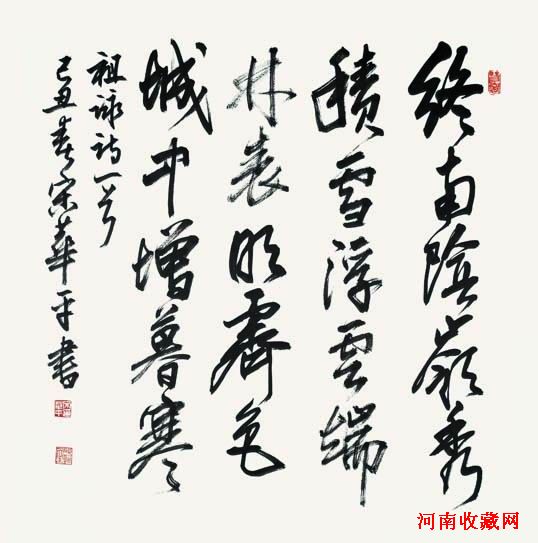 終南陰嶺秀
積雪浮雲端
林表明霽色
城中增暮寒
祖詠詩一首
己丑春宋華平書
河南收藏网